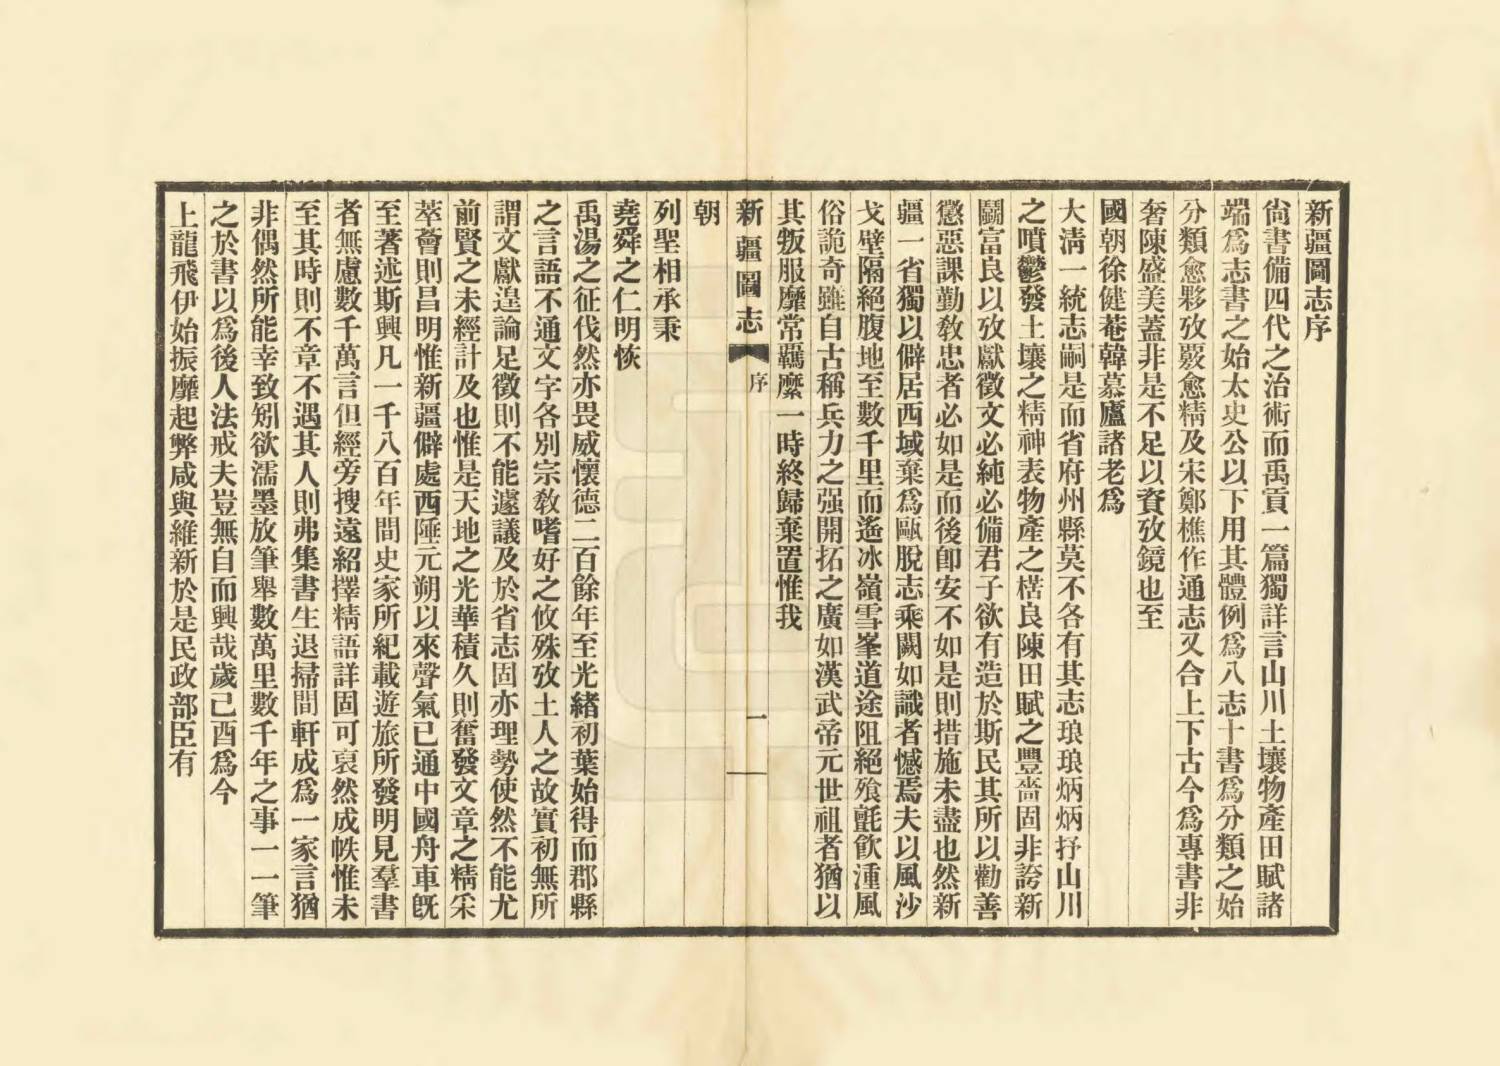 新疆圖志序
尙書備四代之治術而禹貢一篇獨詳言山川土壤物產田賦諸
端爲志書之始太史公以下用其體例爲八志十書爲分類之始
分類愈夥攷覈愈精及宋鄭樵作通志又合上下古今爲專書非
奢陳盛美蓋非是不足以資攷鏡也至
國朝徐健菴韓慕廬諸老爲
大淸一統志嗣是而省府州縣莫不各有其志琅琅炳炳抒山川
之噴鬱發土壤之精神表物產之楛良陳田賦之豐嗇固非誇新
鬭富良以攷獻徵文必純必備君子欲有造於斯民其所以勸善
懲惡課勤敎忠者必如是而後卽安不如是則措施未盡也然新
疆一省獨以僻居西域棄爲甌脫志乘闕如識者憾焉夫以風沙
戈壁隔絕腹地至數千里而遙冰嶺雪峯道途阻絕飱氈飮湩風
俗詭奇雖自古稱兵力之强開拓之廣如漢武帝元世祖者猶以
其叛服靡常羈縻一時終歸棄置惟我
新疆圖志 序 一
朝
列聖相承秉
堯舜之仁明恢
禹湯之征伐然亦畏威懷德二百餘年至光緒初葉始得而郡縣
之言語不通文字各別宗敎嗜好之攸殊攷土人之故實初無所
謂文獻遑論足徵則不能遽議及於省志固亦理勢使然不能尤
前賢之未經計及也惟是天地之光華積久則奮發文章之精采
萃薈則昌明惟新疆僻處西陲元朔以來聲氣已通中國舟車旣
至著述斯興凡一千八百年間史家所紀載遊旅所發明見羣書
者無慮數千萬言但經旁搜遠紹擇精語詳固可裒然成帙惟未
至其時則不章不遇其人則弗集書生退掃間軒成爲一家言猶
非偶然所能幸致矧欲濡墨放筆舉數萬里數千年之事一一筆
之於書以爲後人法戒夫豈無自而興哉歲己酉爲今
上龍飛伊始振靡起弊咸與維新於是民政部臣有